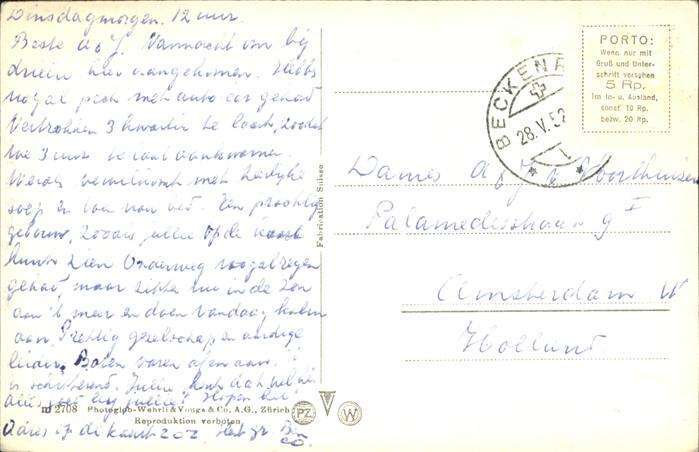 Dinsdagmorgen. 12 uur.
Beste A & J. Vannacht om bij
drieën hier aangekomen. Hebben
nogal pech met auto car gehad
Vertrokken 3 kwartier te laat, zodat
we 3 uur te laat aankwamen
Werden verwelkomd met heerlijke
soep en van nou wel. Een prachtig
gebouw, zooals jullie op de
kunt zien Onderweg nogal regen
gehad, maar zitten nu in de zon
aan 't meer en doen vandaag kalm
aan. Prettig gezelschap en aardige
lieden. Boten varen af en aan.
is schitterend. Jullie
alles bij jullie? Hopen
Adres op de kaart z.o.z.
PORTO:
Wenn nur mit
Gruß und Unter-
schrift versehen
5 Rp.
Im In- u. Ausland,
sonst 10 Rp.
bezw. 20 Rp.
BECKENR
28.V.52
Dames A & J v. Voorthuizen
Palamedesstraat 9 I
Amsterdam W
Holland
Fabrication Suisse
2708 Photoglob-Wehrli & Vouga & Co. A.G., Zürich
Reproduktion verboten
PZ W